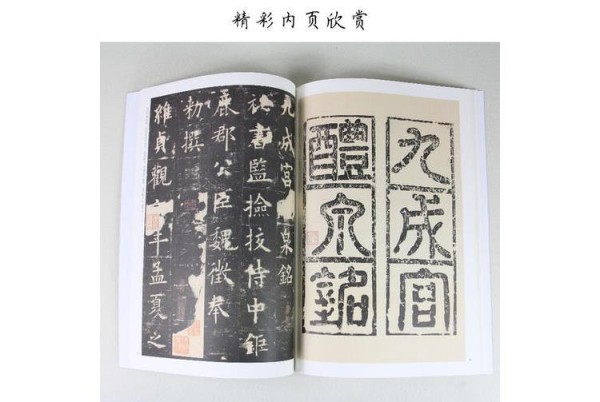 精彩内页欣赏
九成宮
醴泉銘
九成宮泉銘
祕書監撿挍侍中鉅
鹿郡公臣魏徵奉
勅撰
維貞觀年孟夏之